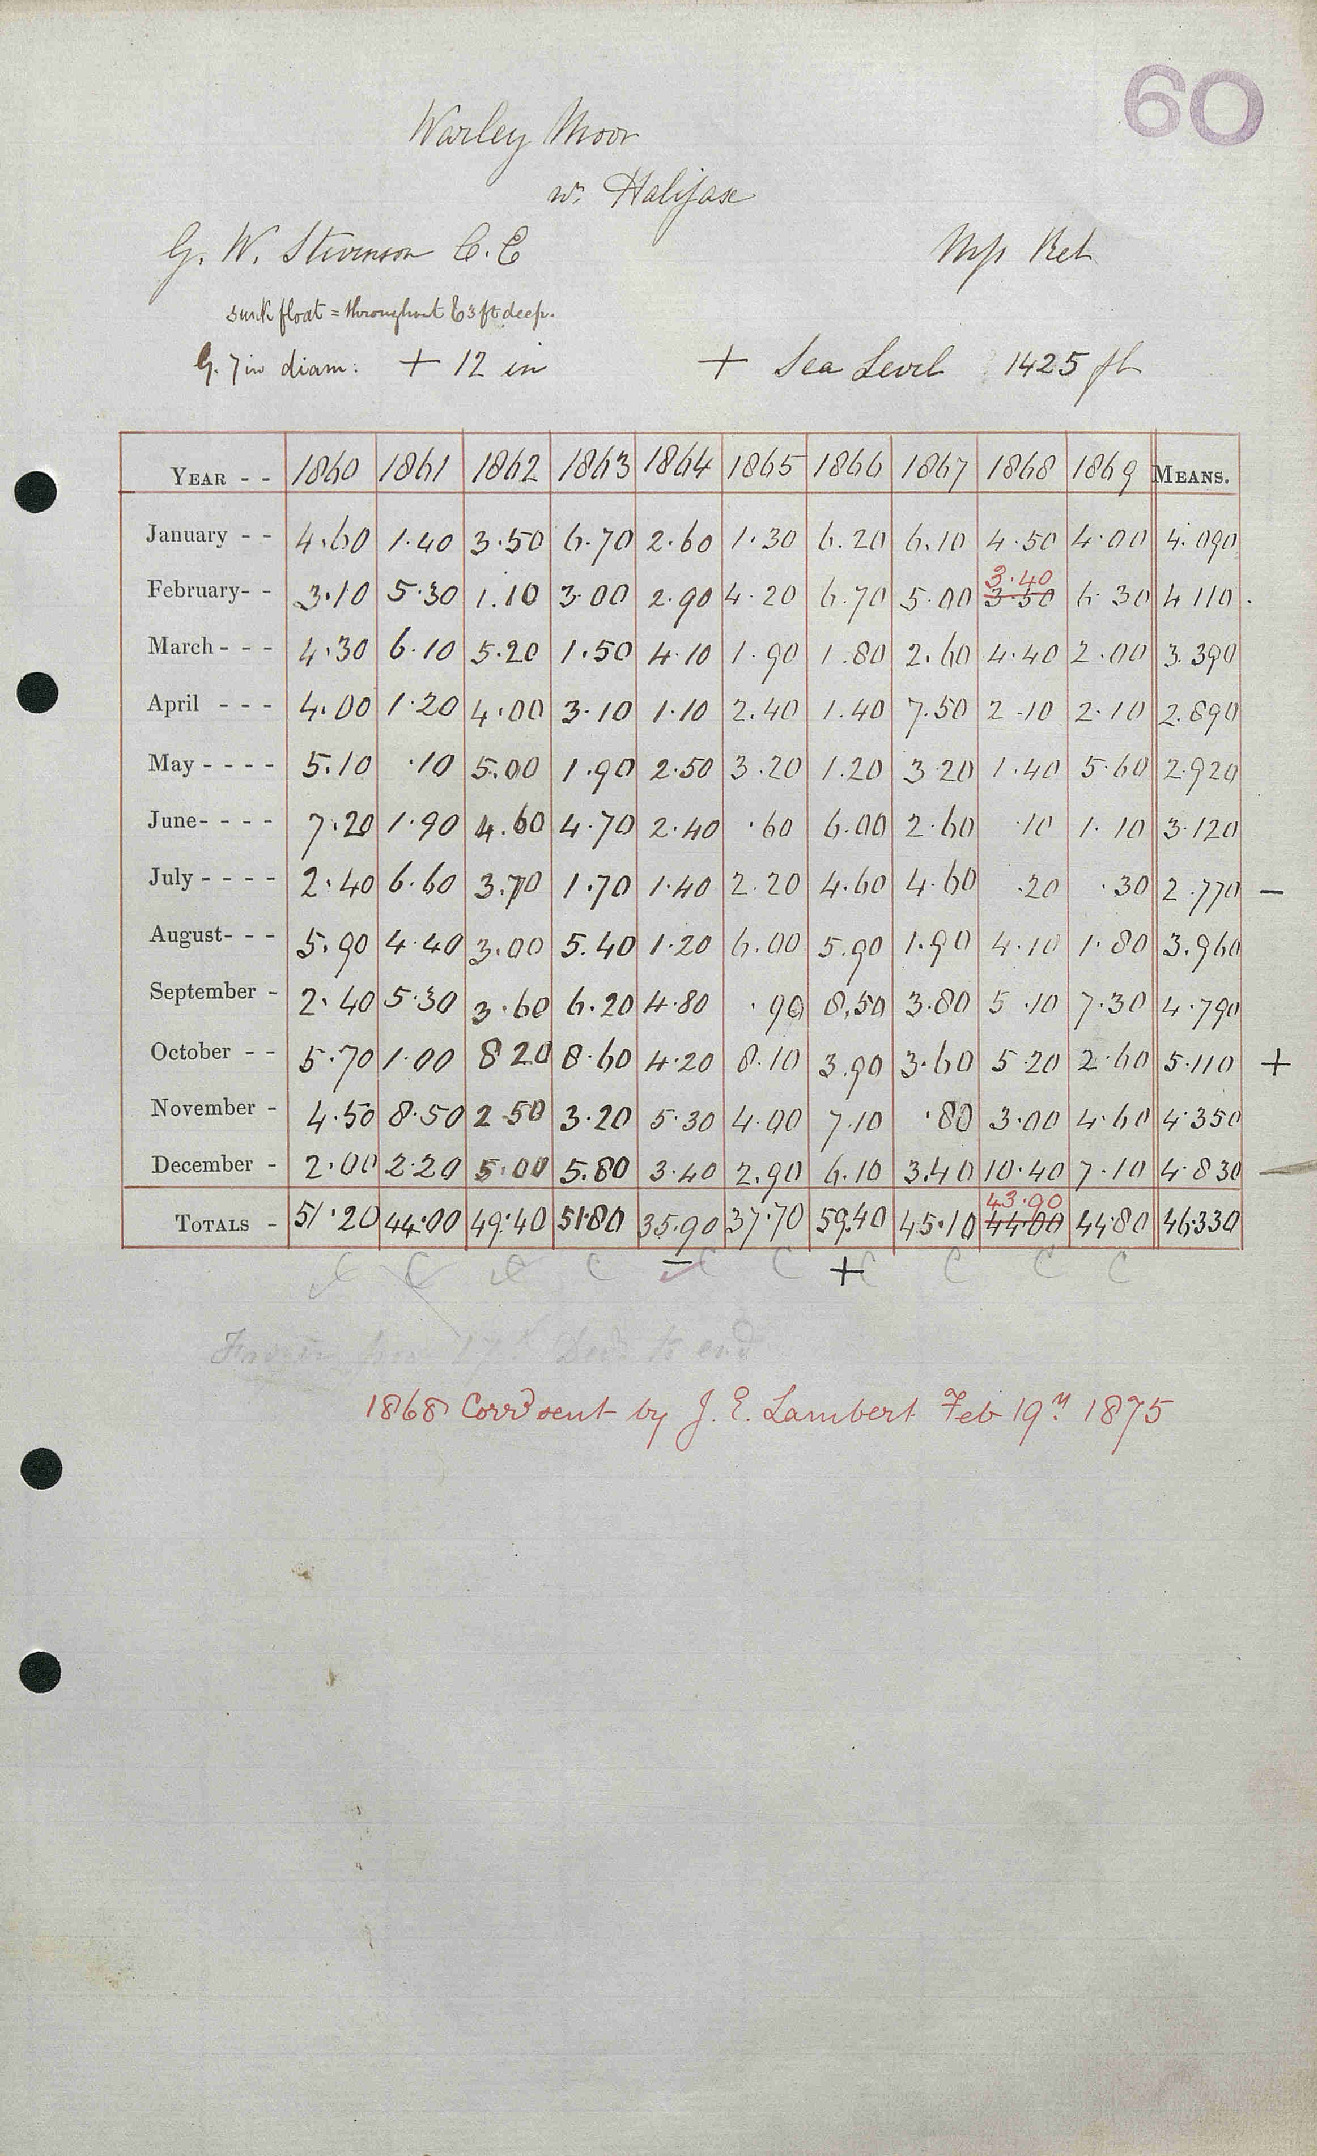 60
Warley Moor
w. Halifax
G. W. Stevenson C. E
M/s Ret
sunk float = throughout & 3 ft deep.
G. 7 in diam: + 12 in + Sea Level 1425 ft
YEAR - - 1860 1861 1862 1863 1864 1865 1866 1867 1868 1869 MEANS.
January - - 4.60 1.40 3.50 6.70 2.60 1.30 6.20 6.10 4.50 4.00 4.090
February- - 3.10 5.30 1.10 3.00 2.90 4.20 6.70 5.00 3.40 3.50 6.30 4.110
March - - - 4.30 6.10 5.20 1.50 4.10 1.90 1.80 2.60 4.40 2.00 3.390
April - - - 4.00 1.20 4.00 3.10 1.10 2.40 1.40 7.50 2.10 2.10 2.890
May - - - - 5.10 .10 5.00 1.90 2.50 3.20 1.20 3.20 1.40 5.60 2.920
June- - - - 7.20 1.90 4.60 4.70 2.40 .60 6.00 2.60 .10 1.10 3.120
July - - - - 2.40 6.60 3.70 1.70 1.40 2.20 4.60 4.60 .20 .30 2.770 –
August- - - 5.90 4.40 3.00 5.40 1.20 6.00 5.90 1.90 4.10 1.80 3.960
September - 2.40 5.30 3.60 6.20 4.80 .90 8.50 3.80 5.10 7.30 4.790
October - - 5.70 1.00 8.20 8.60 4.20 8.10 3.90 3.60 5.20 2.60 5.110 +
November - 4.50 8.50 2.50 3.20 5.30 4.00 7.10 .80 3.00 4.60 4.350
December - 2.00 2.20 5.00 5.80 3.40 2.90 6.10 3.40 10.40 7.10 4.830
TOTALS - 51.20 44.00 49.40 51.80 35.90 37.70 59.40 45.10 43.90 44.00 44.80 46.330
C C C C – C C + C C C C
Frozen from 17th Decr to end
1868 Corrd sent by J. E. Lambert Feb 19th 1875